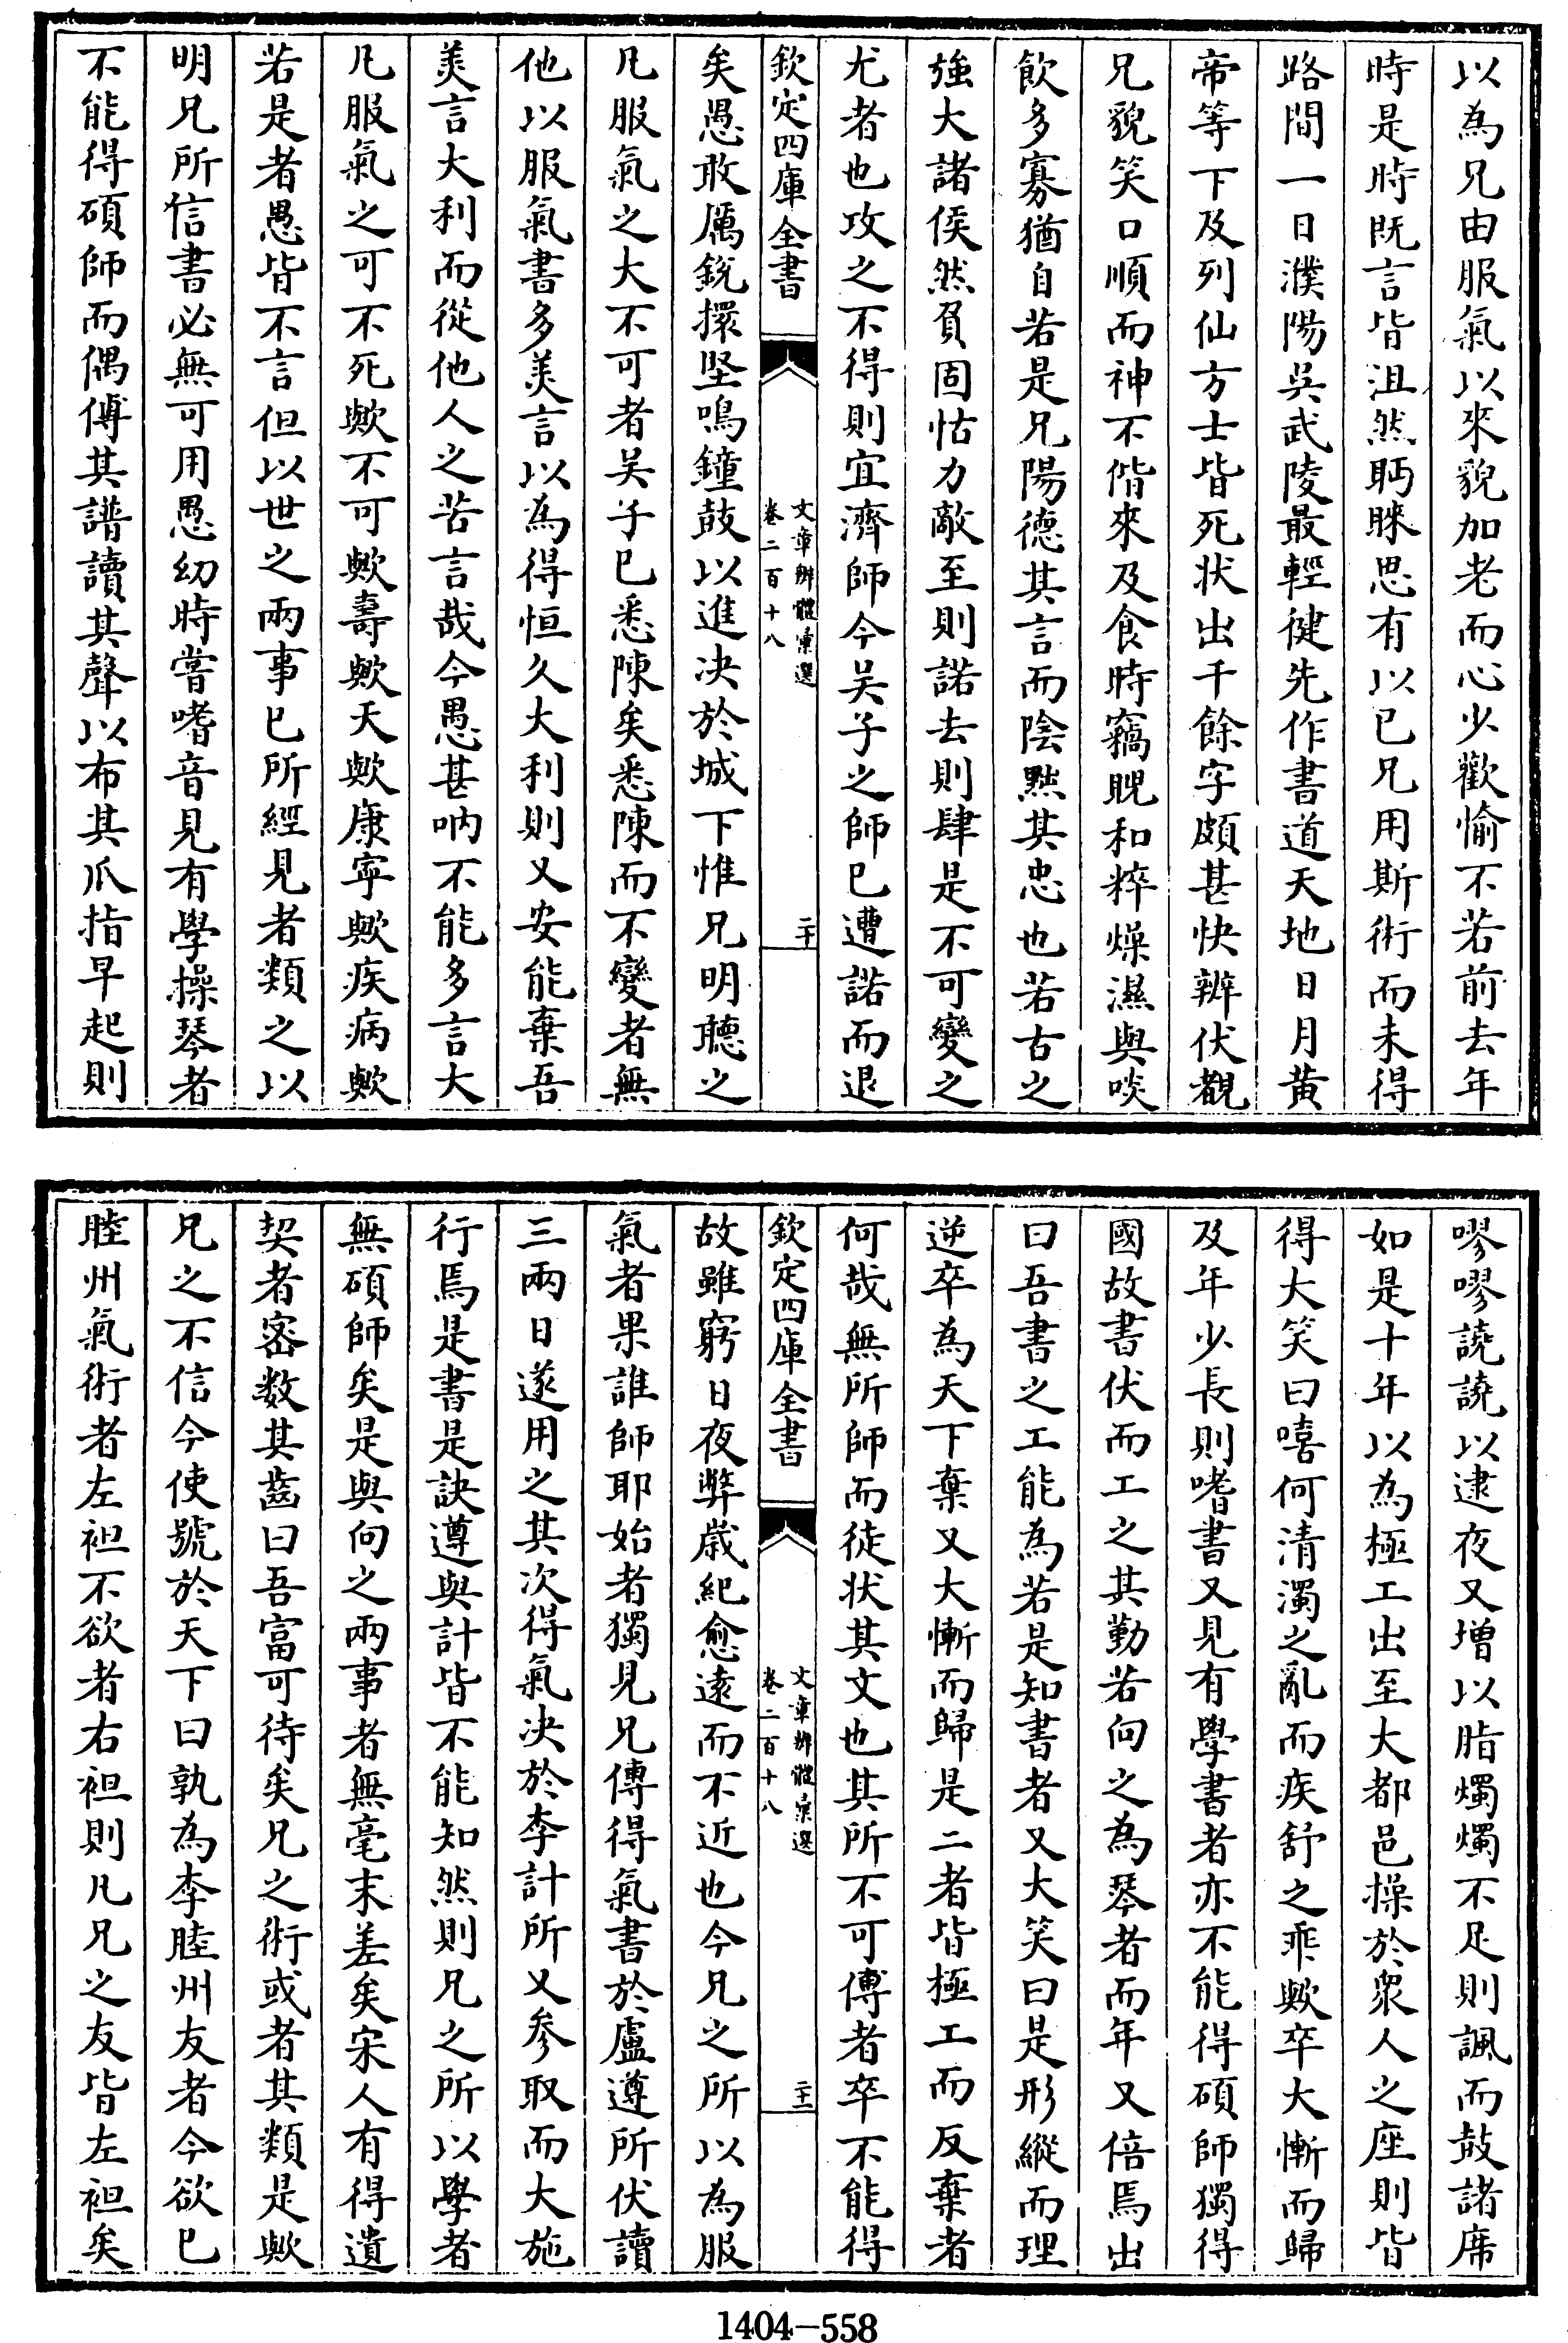 以為兄由服氣以來貌加老而心少歡愉不若前去年
時是時既言皆沮然眄睞思有以已兄用斯術而未得
路間一日濮陽吳武陵最輕健先作書道天地日月黄
帝等下及列仙方士皆死状出千餘字頗甚快辨伏覩
兄貌笑口順而神不偕來及食時竊睨和粹燥濕與啖
飲多寡猶自若是兄陽德其言而陰黙其忠也若古之
強大諸侯然負固怙力敵至則諾去則肆是不可變之
尤者也攻之不得則宜濟師今吴子之師已遭諾而退
欽定四庫全書
文章辨體彚選
卷二百十八
二十
矣愚敢厲銳擐堅鳴鐘鼓以進决於城下惟兄明聽之
凡服氣之大不可者吴子已悉陳矣悉陳而不變者無
他以服氣書多美言以為得恒久大利則又安能棄吾
美言大利而從他人之苦言哉今愚甚吶不能多言大
凡服氣之可不死歟不可歟壽歟天歟康寜歟疾病歟
若是者愚皆不言但以世之兩事已所經見者類之以
明兄所信書必無可用愚幼時嘗嗜音見有學操琴者
不能得碩師而偶傳其譜讀其聲以布其爪指早起則
嘐嘐譊譊以逮夜又增以脂燭燭不足則諷而鼓諸席
如是十年以為極工出至大都邑操於衆人之座則皆
得大笑曰嘻何清濁之亂而疾舒之乖歟卒大慚而歸
及年少長則嗜書又見有學書者亦不能得碩師獨得
國故書伏而工之其勤若向之為琴者而年又倍焉出
曰吾書之工能為若是知書者又大笑曰是形縱而理
逆卒為天下棄又大慚而歸是二者皆極工而反棄者
何哉無所師而徒状其文也其所不可傳者卒不能得
欽定四庫全書
文章辨體彚選
卷二百十八
二十一
故雖窮日夜弊歲紀愈遠而不近也今兄之所以為服
氣者果誰師耶始者獨見兄傳得氣書於盧遵所伏讀
三兩日遂用之其次得氣决於李計所又参取而大施
行焉是書是訣遵與計皆不能知然則兄之所以學者
無碩師矣是與向之兩事者無毫末差矣宋人有得遺
契者密数其齒曰吾富可待矣兄之術或者其類是歟
兄之不信今使號於天下曰孰為李睦州友者今欲已
睦州氣術者左袒不欲者右袒則凡兄之友皆左袒矣
1404-558